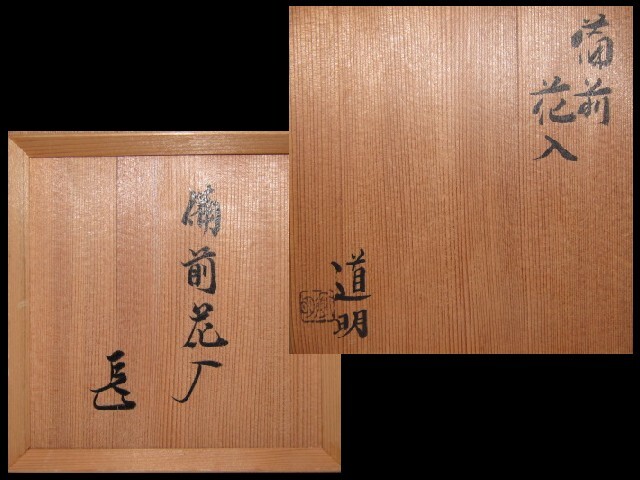 備前
花入
道明
備前花入